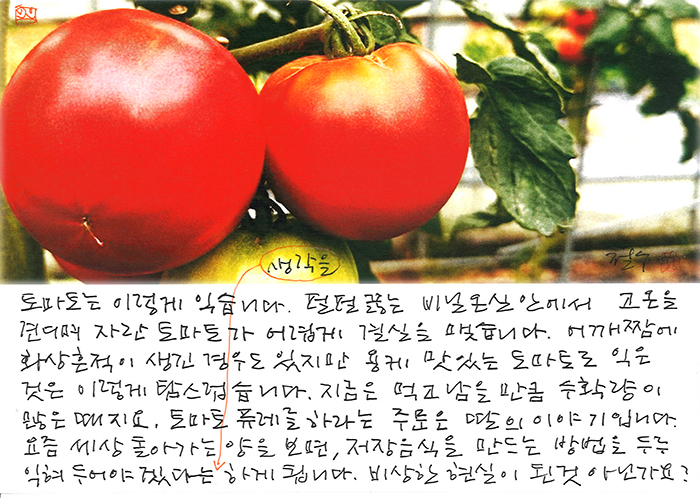 생각을
철수
토마토는 이렇게 익습니다. 펄펄 끓는 비닐온실 안에서 고온을
견디며 자란 토마토가 어렵게 결실을 맺습니다. 어깨짬에
화상흔적이 생긴 경우도 있지만 용케 맛있는 토마토로 익은
것은 이렇게 탐스럽습니다. 지금은 먹고 남을 만큼 수확량이
많은 때지요. 토마토 퓨레를 하라는 주문은 딸의 이야기입니다.
요즘 세상 돌아가는 양을 보면, 저장음식을 만드는 방법을 두루
익혀 두어야겠다는 하게 됩니다. 비상한 현실이 된 것 아닌가요?